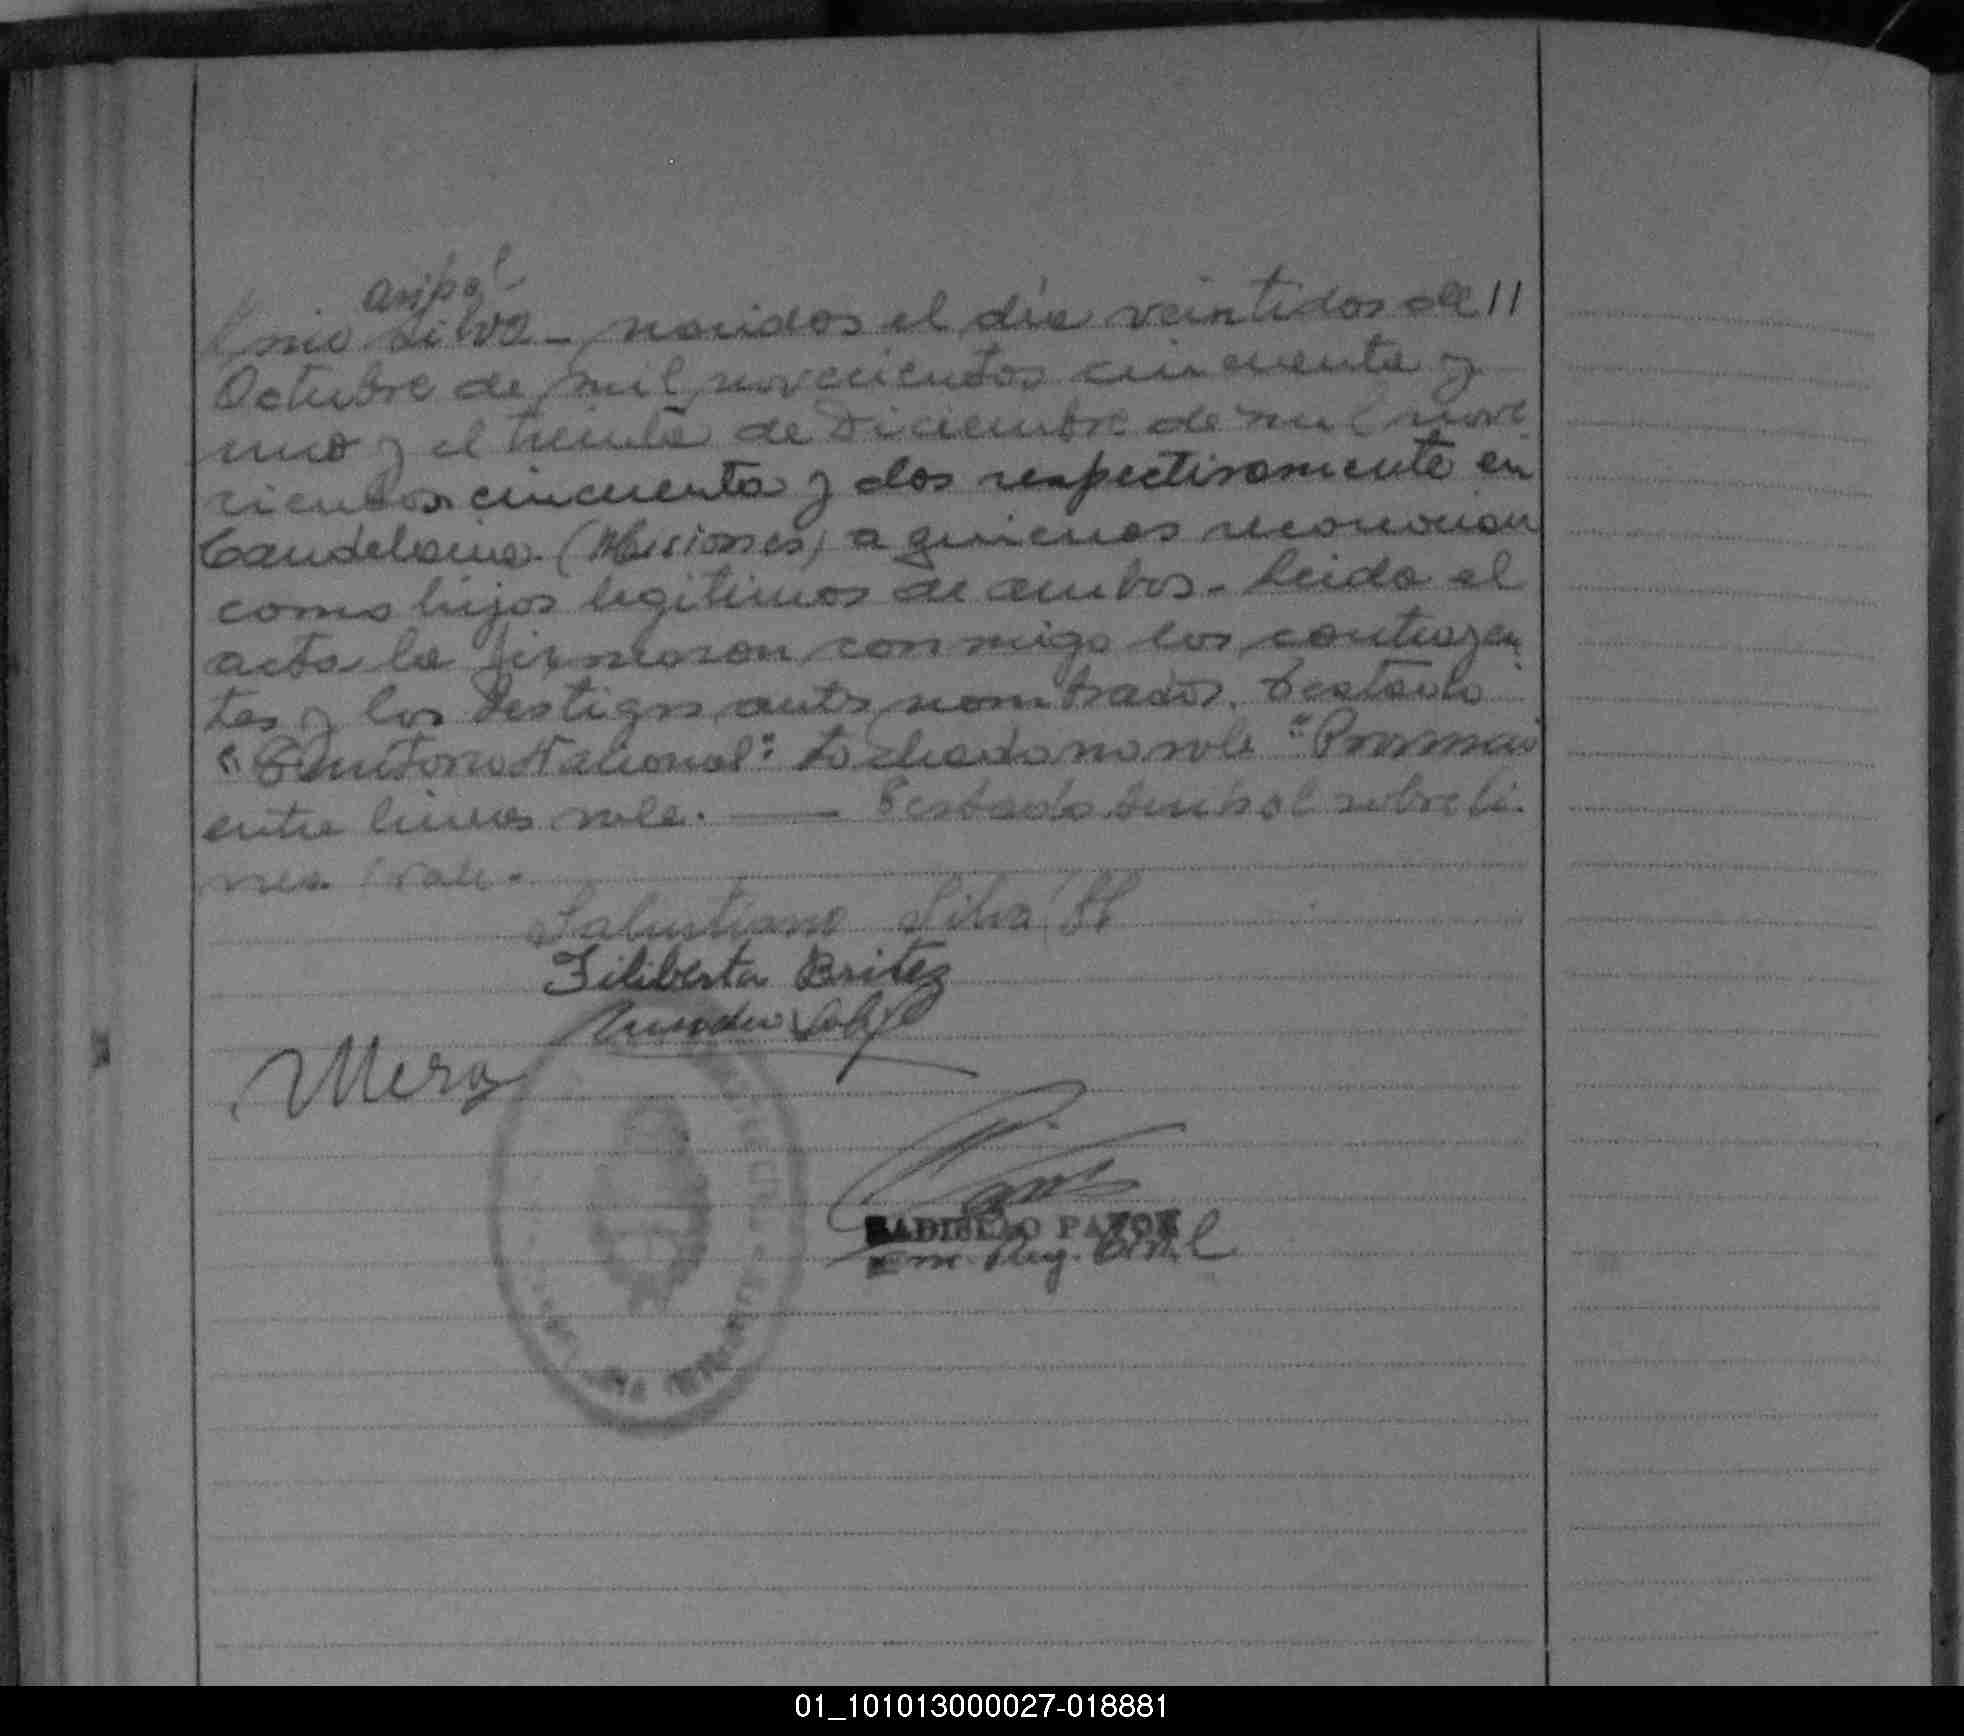 Silva - nacidos el día veintidos de //
Octubre de mil novecientos cincuenta y
uno y el treinta de Diciembre de mil nove
cientos cincuenta y dos respectivamente en
Candelaria (Misiones) a quienes reconocian
como hijos legitimos de ambos. Leida el
acta la firmaron conmigo los contrayen
tes y los testigos antes nombrados. Testado
Nacional" no vale "Provincia"
entre lineas vale. — Testado sobre li
nea vale.
Salustiano Silva H
Filiberta Britez
Mera
LADISLAO PAZOK
Enc. Reg. Civil
01_101013000027-018881